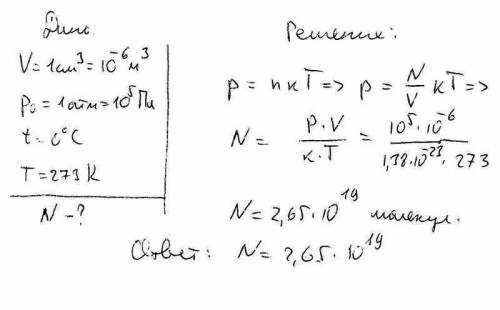 Дано:
V=1см³=10⁻⁶м³
p₀=1атм=10⁵Па
t=0°C
T=273К
N-?
Решение:
p=nкT=> p=N/V кT=>
N= P·V/к·T = 10⁵·10⁻⁶/1,38·10⁻²³·273
N=2,65·10¹⁹ молекул.
Ответ: N=2,65·10¹⁹